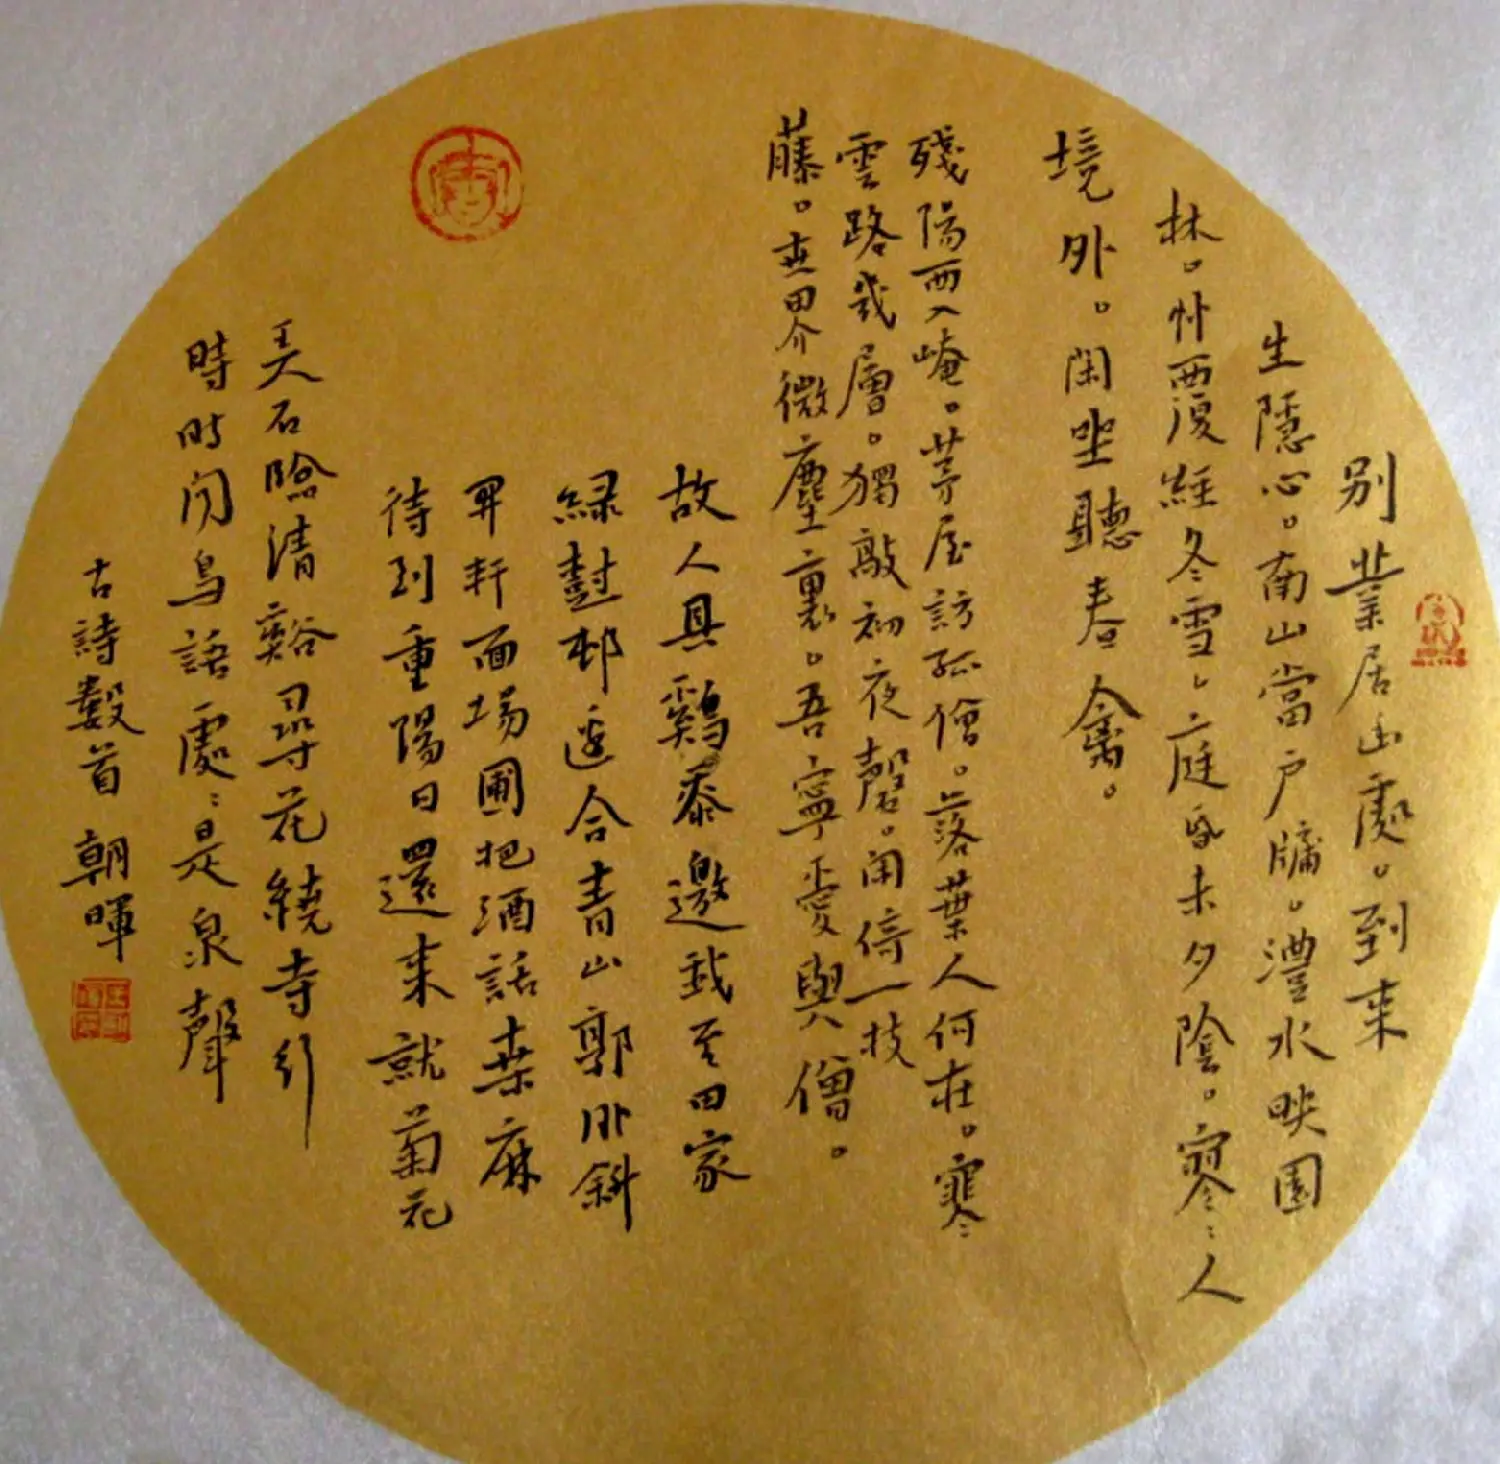 别業居幽處。到来
生隱心。南山當户牖。灃水映園
林。竹覆經冬雪。庭昏未夕陰。寥〻人
境外。閑坐聽春禽。
殘陽西入崦。茅屋訪孤僧。落葉人何在。寒
雲路幾層。獨敲初夜磬。閑倚一枝
藤。世界微塵裏。吾寧愛與僧。
故人具鷄黍邀我至田家
緑樹邨邊合青山郭外斜
開軒面場圃把酒話桑麻
待到重陽日還来就菊花
弄石臨清谿尋花繞寺行
時時聞鳥語處〻是泉聲
古詩數首 朝暉